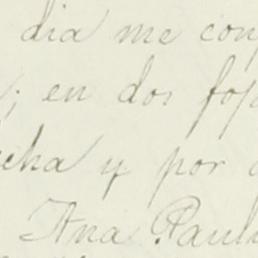 dia me con
; en dos foj
cha y por
Ana Paul